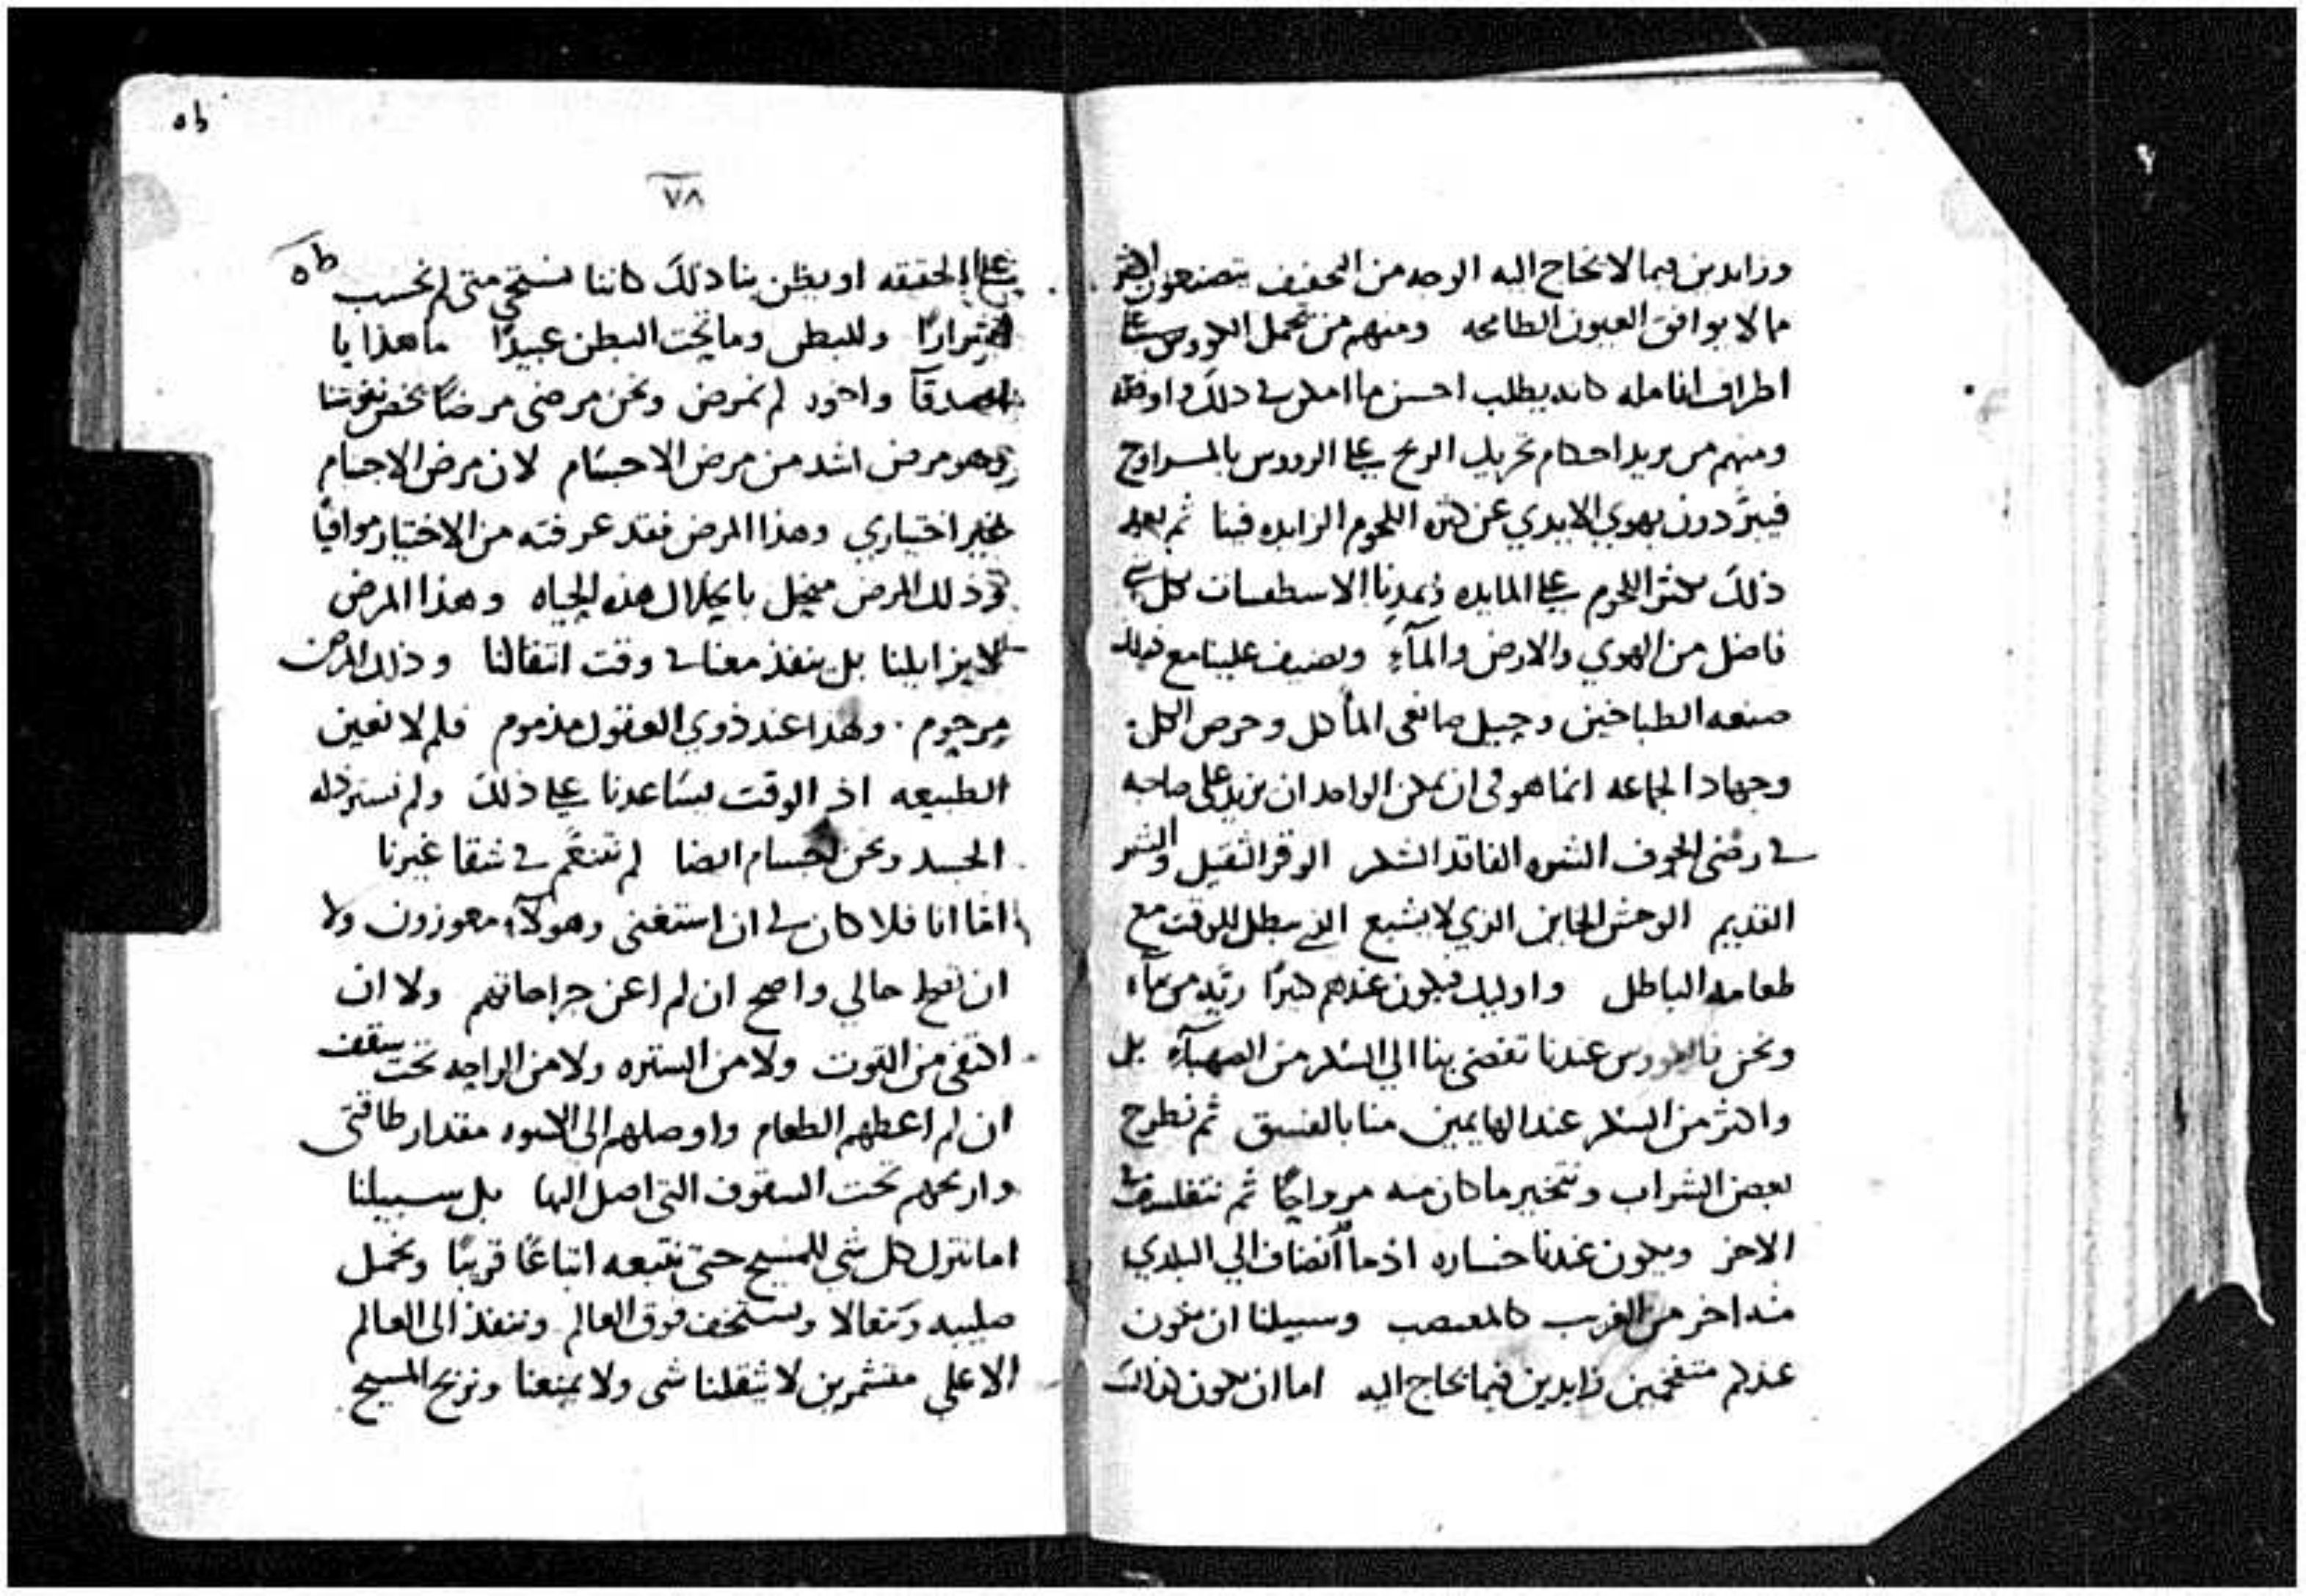 وزايدين فيما لا نحتاج اليه الوجه من التحفيف يتصنعون اكثر
مما لا يوافق العيون الطامحه ومنهم من يحمل الكووس على
اطراف انامله كانه يطلب احسن ما امكن في ذلك واوفقه
ومنهم من يريد احكام تحريك الريح على الرووس بالمراوح
فيبرّدون بهوي الايدي عن كثره اللحوم الزايده فينا ثم بعد
ذلك تكثر اللحوم على المايده وتمدنا الاسطقسات كل شي
فاضل من الهوي والارض والمآء ويضيف علينا مع ذلك
صنعه الطباخين وحيل صانعى المأكل وحرص الكل
وجهاد الجماعه انما هو في ان يمكن الواحد ان يزيد على صاحبه
في رضى الجوف الشره الفاقد الشكر الوقر الثقيل والشر
القديم الوحش الخاين الذي لا يشبع الذي يبطل للوقت مع
طعامه الباطل واوليك فيكون عندهم كبيرًا ريّه من مآء
ونحن فالكووس عندنا تفضى بنا الي السكر من الصهبآء بل
واكثر من السكر عند الهايمين منا بالفسق ثم نطرح
بعض الشراب ونتخير ما كان منه مروايحًا ثم نتفلسف في
الاخر ويكون عندنا خساره اذ ما انضاف الي البلدي
منه اخر من الغرب كالمغصب وسبيلنا ان نكون
عندكم متنعمين زايدين فيما نحتاج اليه اما ان نكون كذلك
ه ط
٧٨
على الحقيقه او يظن بنا ذلك كاننا نستحي متى لم نحسب ط ه
اشرارًا وللبطن وما تحت البطن عبيدًا ما هذا يا
اصدقآ واخوه لم نمرض ونحن مرضى مرضًا يخص نفوسنا
وهو مرض اشد من مرض الاجسام لان مرض الاجسام
غير اختياري وهذا المرض فقد عرفته من الاختيار موافيًا
وذلك المرض ينحل بانحلال هذه الحياه وهذا المرض
لا يزايلنا بل ينفذ معنا في وقت انتقالنا وذلك المرض
مرحوم وهذا عند ذوي العقول مذموم فلم لا نعين
الطبيعه اذ الوقت يساعدنا على ذلك ولم نستر ذله
الجسد ونحن اجسام ايضا لم نتنعّم في شقا غيرنا
امّا انا فلا كان لي ان استغنى وهولآء معوزون ولا
ان نصح حالي واصح ان لم اعن جراحاتهم ولا ان
اكتفي من القوت ولا من الستره ولا من الراحه تحت سقف
ان لم اعطهم الطعام واوصلهم الى الكسوه مقدار طاقتى
واريحهم تحت السقوف التى اصل اليها بل سبيلنا
اما نترك كل شي للمسيح حتى نتبعه اتباعًا قريبًا ونحمل
صليبه ونتعالا ونستخف فوق العالم وننفذ الى العالم
الاعلي متشمرين لا يثقلنا شى ولا يمنعنا ونربح المسيح